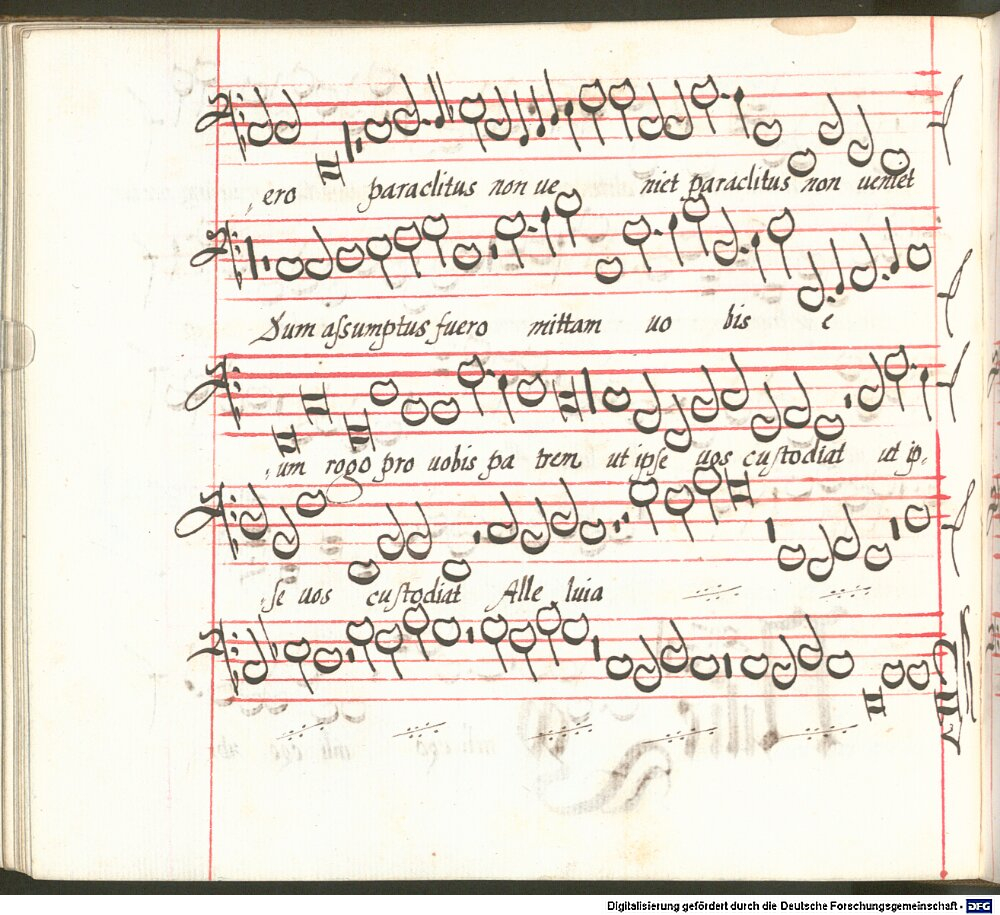 ero paraclitus non ue niet paraclitus non ueniet
Dum aſsumptus fuero mittam uo bis è
um rogo pro uobis pa trem ut ipſe uos cuſtodiat ut ip,
ſe uos cuſtodiat Alle luia
Digitalisierung gefördert durch die Deutsche Forschungsgemeinschaft - DFG